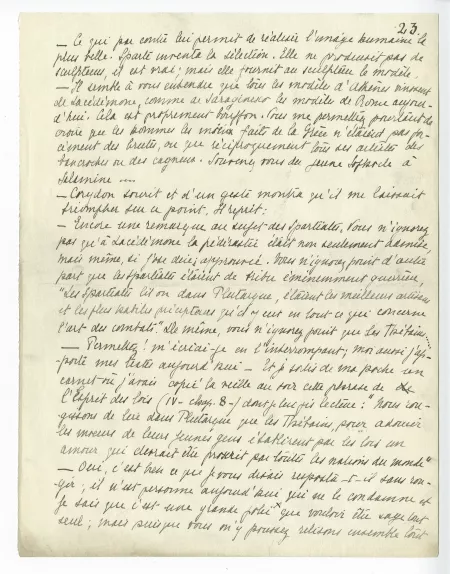 23.
— Ce qui par contre lui permit de réaliser l'image humaine la
plus belle. Sparte inventa la sélection. Elle ne produisit pas de
sculpteurs, il est vrai; mais elle fournit au sculpteur le modèle.
— Il semble à vous entendre que tous les modèles d'Athènes vinssent
de Lacédémone, comme de Saraginesco les modèles de Rome aujour-
d'hui. Cela est proprement bouffon. Vous me permettrez pourtant de
croire que les hommes bien faits de la Grèce n'étaient pas for-
cément des brutes, ou que réciproquement tous ses artistes des
bancroches ou des cagneux. Souvenez vous du jeune Sophocle à
Salamine ....
— Corydon sourit et d'un geste montra qu'il me laissait
triompher sur ce point. Il reprit:
— Encore une remarque au sujet des Spartiates. Vous n'ignorez
pas qu'à Lacédémone la pédérastie était non seulement admise,
mais même, si j'ose dire, approuvée. Vous n'ignorez point d'autre
part que les Spartiates étaient de tribu éminemment guerrière,
"Les Spartiates lit on dans Plutarque, étaient les meilleurs artisans
et les plus habiles précepteurs qu'il y eut en tout ce qui concerne
l'art des combats". De même, vous n'ignorez point que les Thébains...
— Permettez! m'écriai-je en l'interrompant; moi aussi j'ap-
porte mes textes aujourd'hui — Et je sortis de ma poche un
carnet où j'avais copié la veille au soir cette phrase de
l'Esprit des lois (IV - chap. 8 -) dont je lui fis lecture: "Nous rou-
gissons de lire dans Plutarque que les Thébains, pour adoucir
les mœurs de leurs jeunes gens établirent par les lois un
amour qui devrait être proscrit par toutes les nations du monde"
— Oui, c'est bien ce que je vous disais reposta-t-il sans rou-
gir; il n'est personne aujourd'hui qui ne le condamne et
je sais que c'est une grande folie que vouloir être sage tout
seul; mais puisque vous m'y poussez relisons ensemble tout